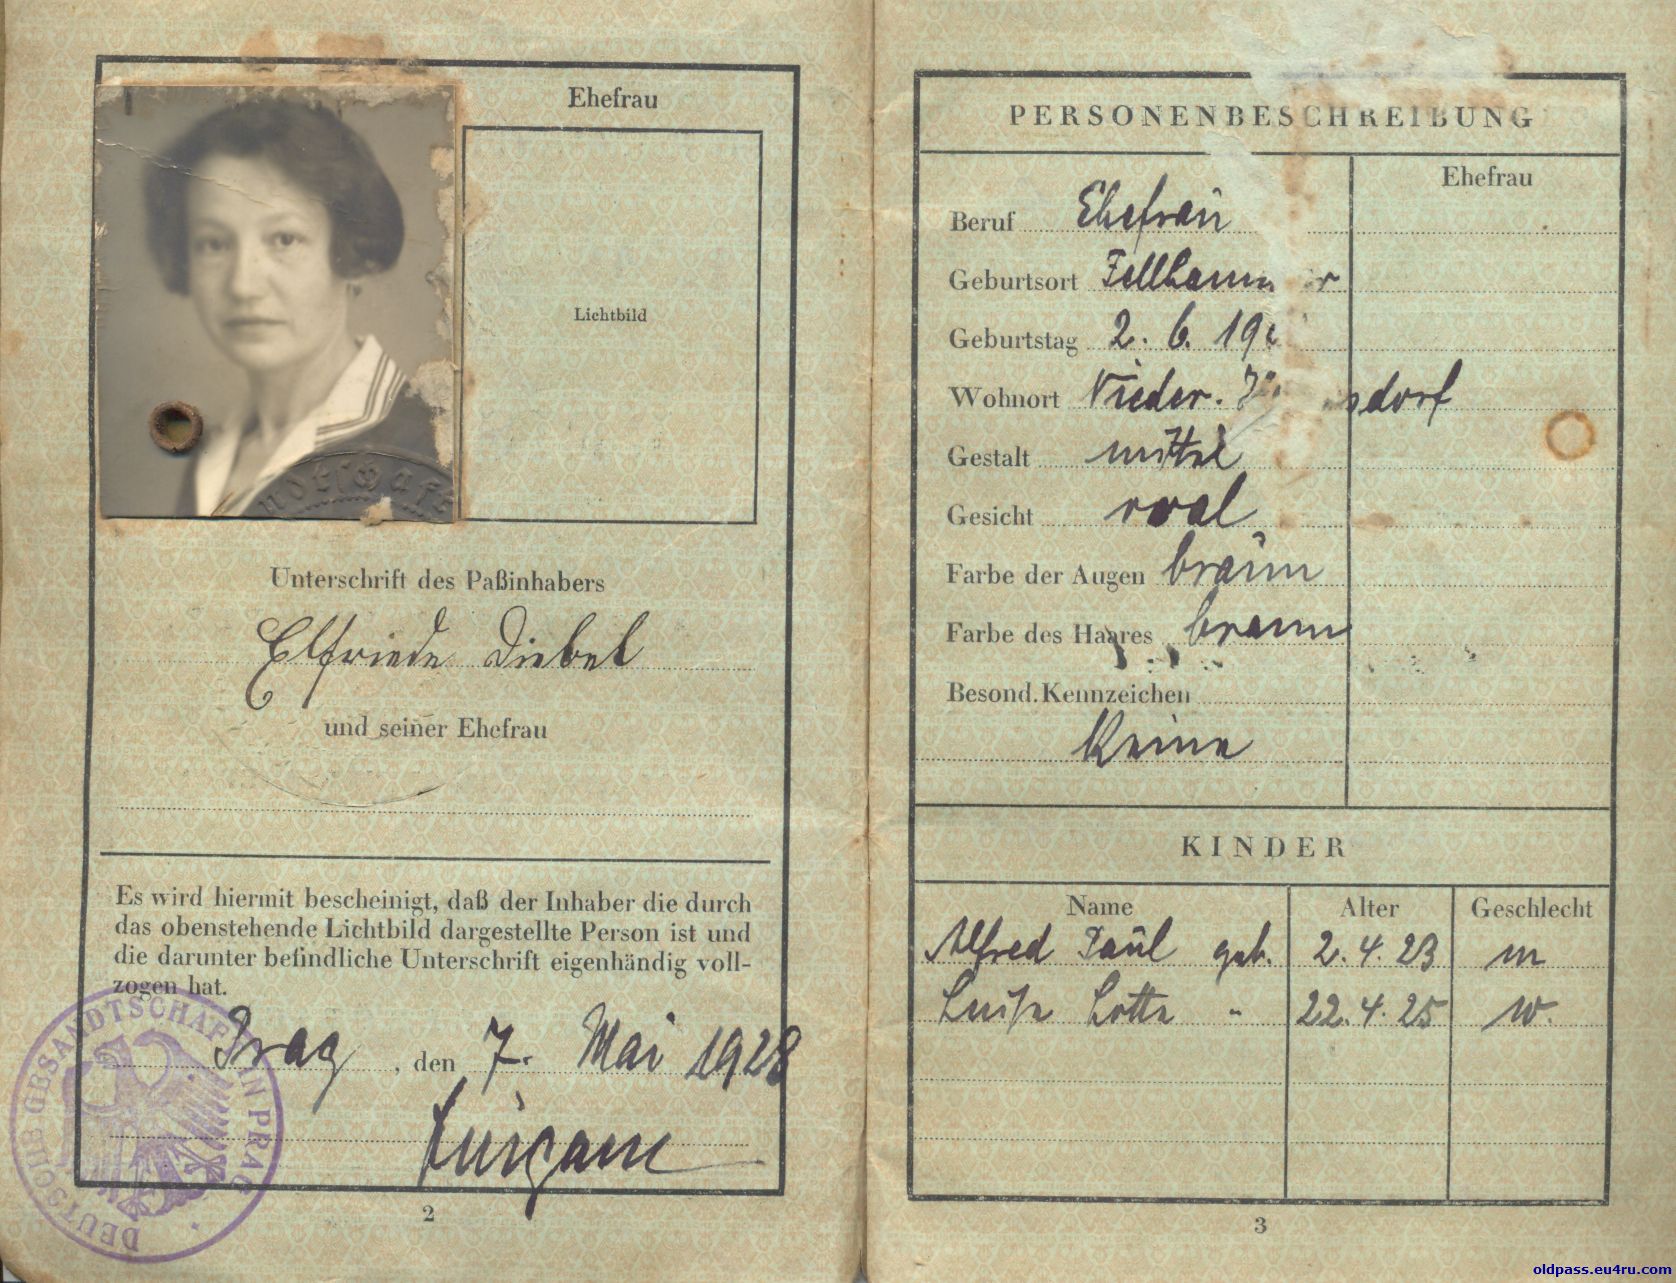 Ehefrau
Lichtbild
ndtschaft
Unterschrift des Paßinhabers
Elfriede Diebel
und seiner Ehefrau
Es wird hiermit bescheinigt, daß der Inhaber die durch
das obenstehende Lichtbild dargestellte Person ist und
die darunter befindliche Unterschrift eigenhändig voll-
zogen hat.
Prag, den 7. Mai 1928
DEUTSCHE GESANDTSCHAFT IN PRAG
2
PERSONENBESCHREIBUNG
Ehefrau
Beruf Ehefrau
Geburtsort Fellhammer
Geburtstag 2. 6. 19
Wohnort Nieder. dorf
Gestalt mittel
Gesicht oval
Farbe der Augen braun
Farbe des Haares braun
Besond. Kennzeichen
Keine
KINDER
Name Alter Geschlecht
Alfred Paul geb. 2.4.23 m
Luise Lotte " 22.4.25 w.
3
oldpass.eu4ru.com